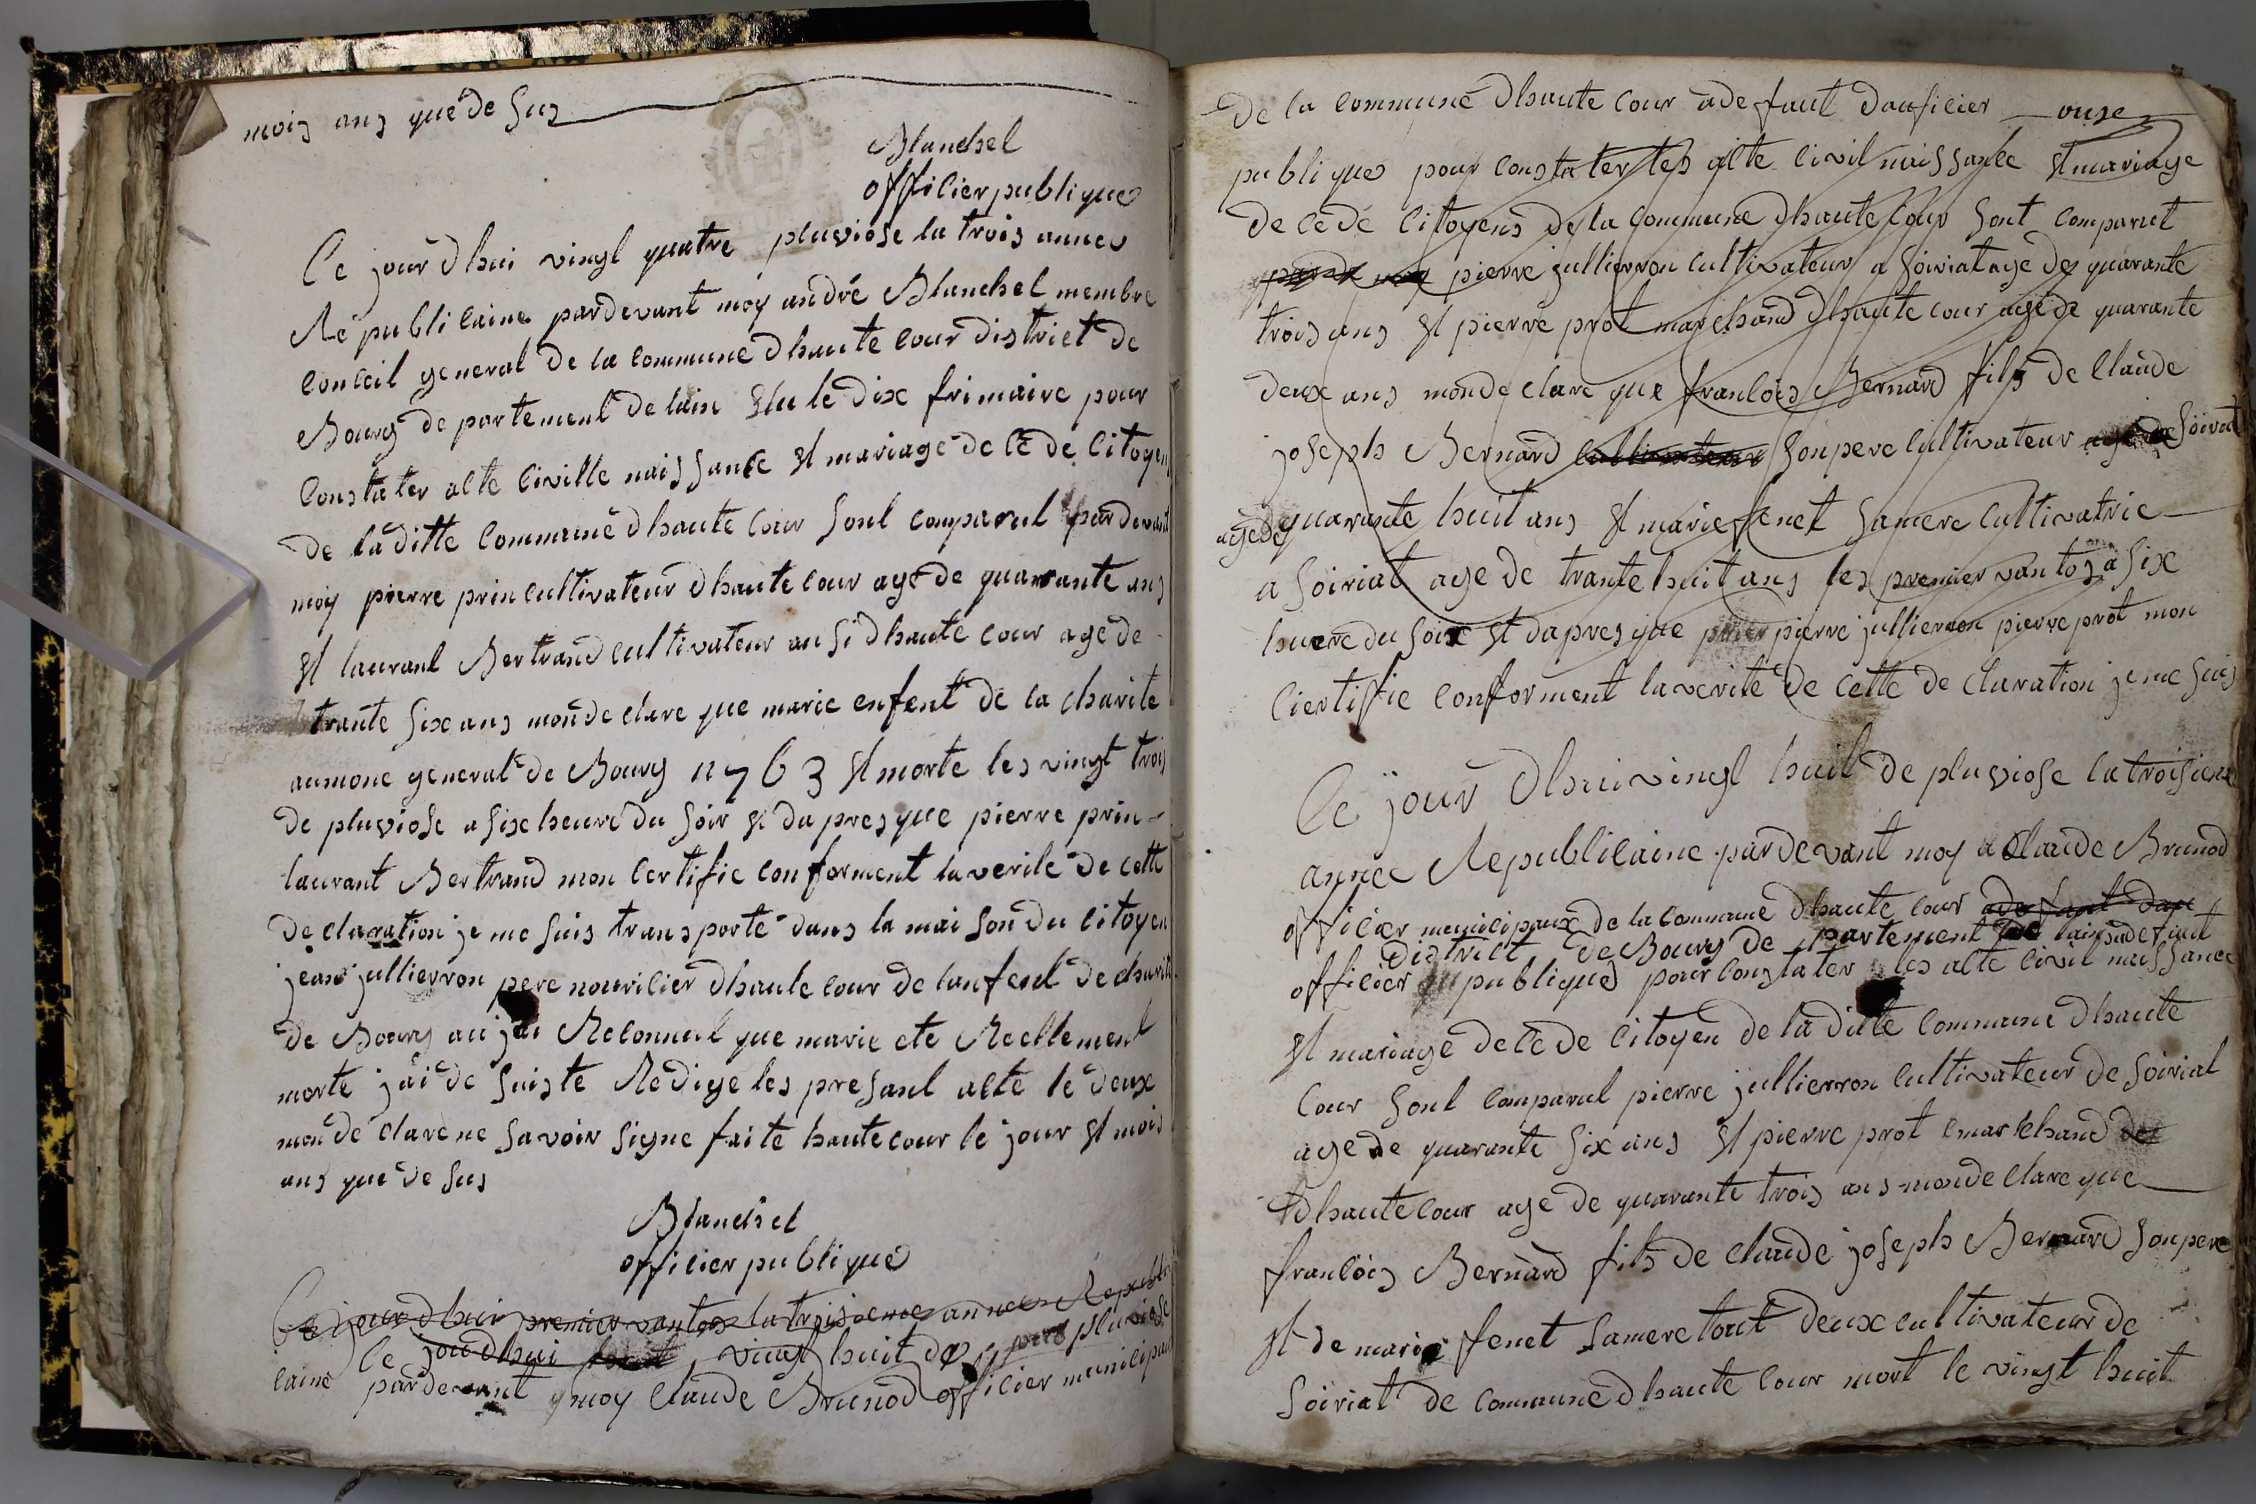 mois ans que de sus
Blanchel
officier publique
Ce jour d hui vingt quatre pluviose la trois annee
Republicaine pardevant moy andré Blanchel membre
conceil general de la commune d haute cour district de
Bourg de partement de lain Elu le dix frimaire pour
constater acte civille naissance et mariage de cé dé citoyen
de la ditte commune d haute cour sont comparut pardevant
moy pierre prin cultivateur d haute cour age de quarante ans
et laurant Bertrand cultivateur ausi d haute cour age de
trante six ans mon de clare que marie enfent de la charite
aumone general de Bourg n 763 et morte les vingt trois
de pluviose a six heure du soir et da pres que pierre prin
laurant Bertrand mon certifie conforment la verite de cette
de claration je me suis transporte dans la maison du citoyen
jean jullierron pere nouricier d haute cour de lanfent de charite
de Bourg au jai Reconnut que marie ete Reellement
morte jai de suiste Redige les presant acte le deux
mon de clare ne savoir signe faite haute cour le jour et mois
ans que de sus
Blanchel
officier publique
Ce jour d hui premier vantos la troisieme annee Republi
Ce jou d hui vingt huit de pluviose
caine pardevant moy claude Brunod officier municipaux
de la commune d haute cour a de faut daoficier
publique pour constater les acte civil naissance et mariage
de ce de citoyens de la commune d haute cour sont comparut
pierre jullierron cultivateur a soiriat age de quarante
trois ans et pierre prot marchand d haute cour age de quarante
deux ans mon de clare que francois Bernard fils de Claude
joseph Bernard cultivateur son pere cultivateur age de soiriat
age de quarante huit ans et marie fenet sa mere cultivatrice
a soiriat age de trante huit ans les premier vantos a six
huere du soir et da pres que pierre jullierron pierre prot mon
ciertifie conforment la verite de cette de claration je me suis
Ce jour d hui vingt huit de pluviose la troisieme
annee Republicaine pardevant moy Claude Brunod
officier municipaux de la commune d haute cour a de faut dau
district de Bourg de partement de lain a defaut
officier publique pour constater les acte civil naissance
et mariage de cé de citoyen de la ditte commune d haute
cour sont comparut pierre jullierron cultivateur de soiriat
age de quarante six ans et pierre prot marchand de
d haute cour age de quarante trois ans mon de clare que
francois Bernard fils de claude joseph Bernard son pere
et de marie fenet sa mere tout deux cultivateur de
soiriat de commune d haute cour mort le vingt huit